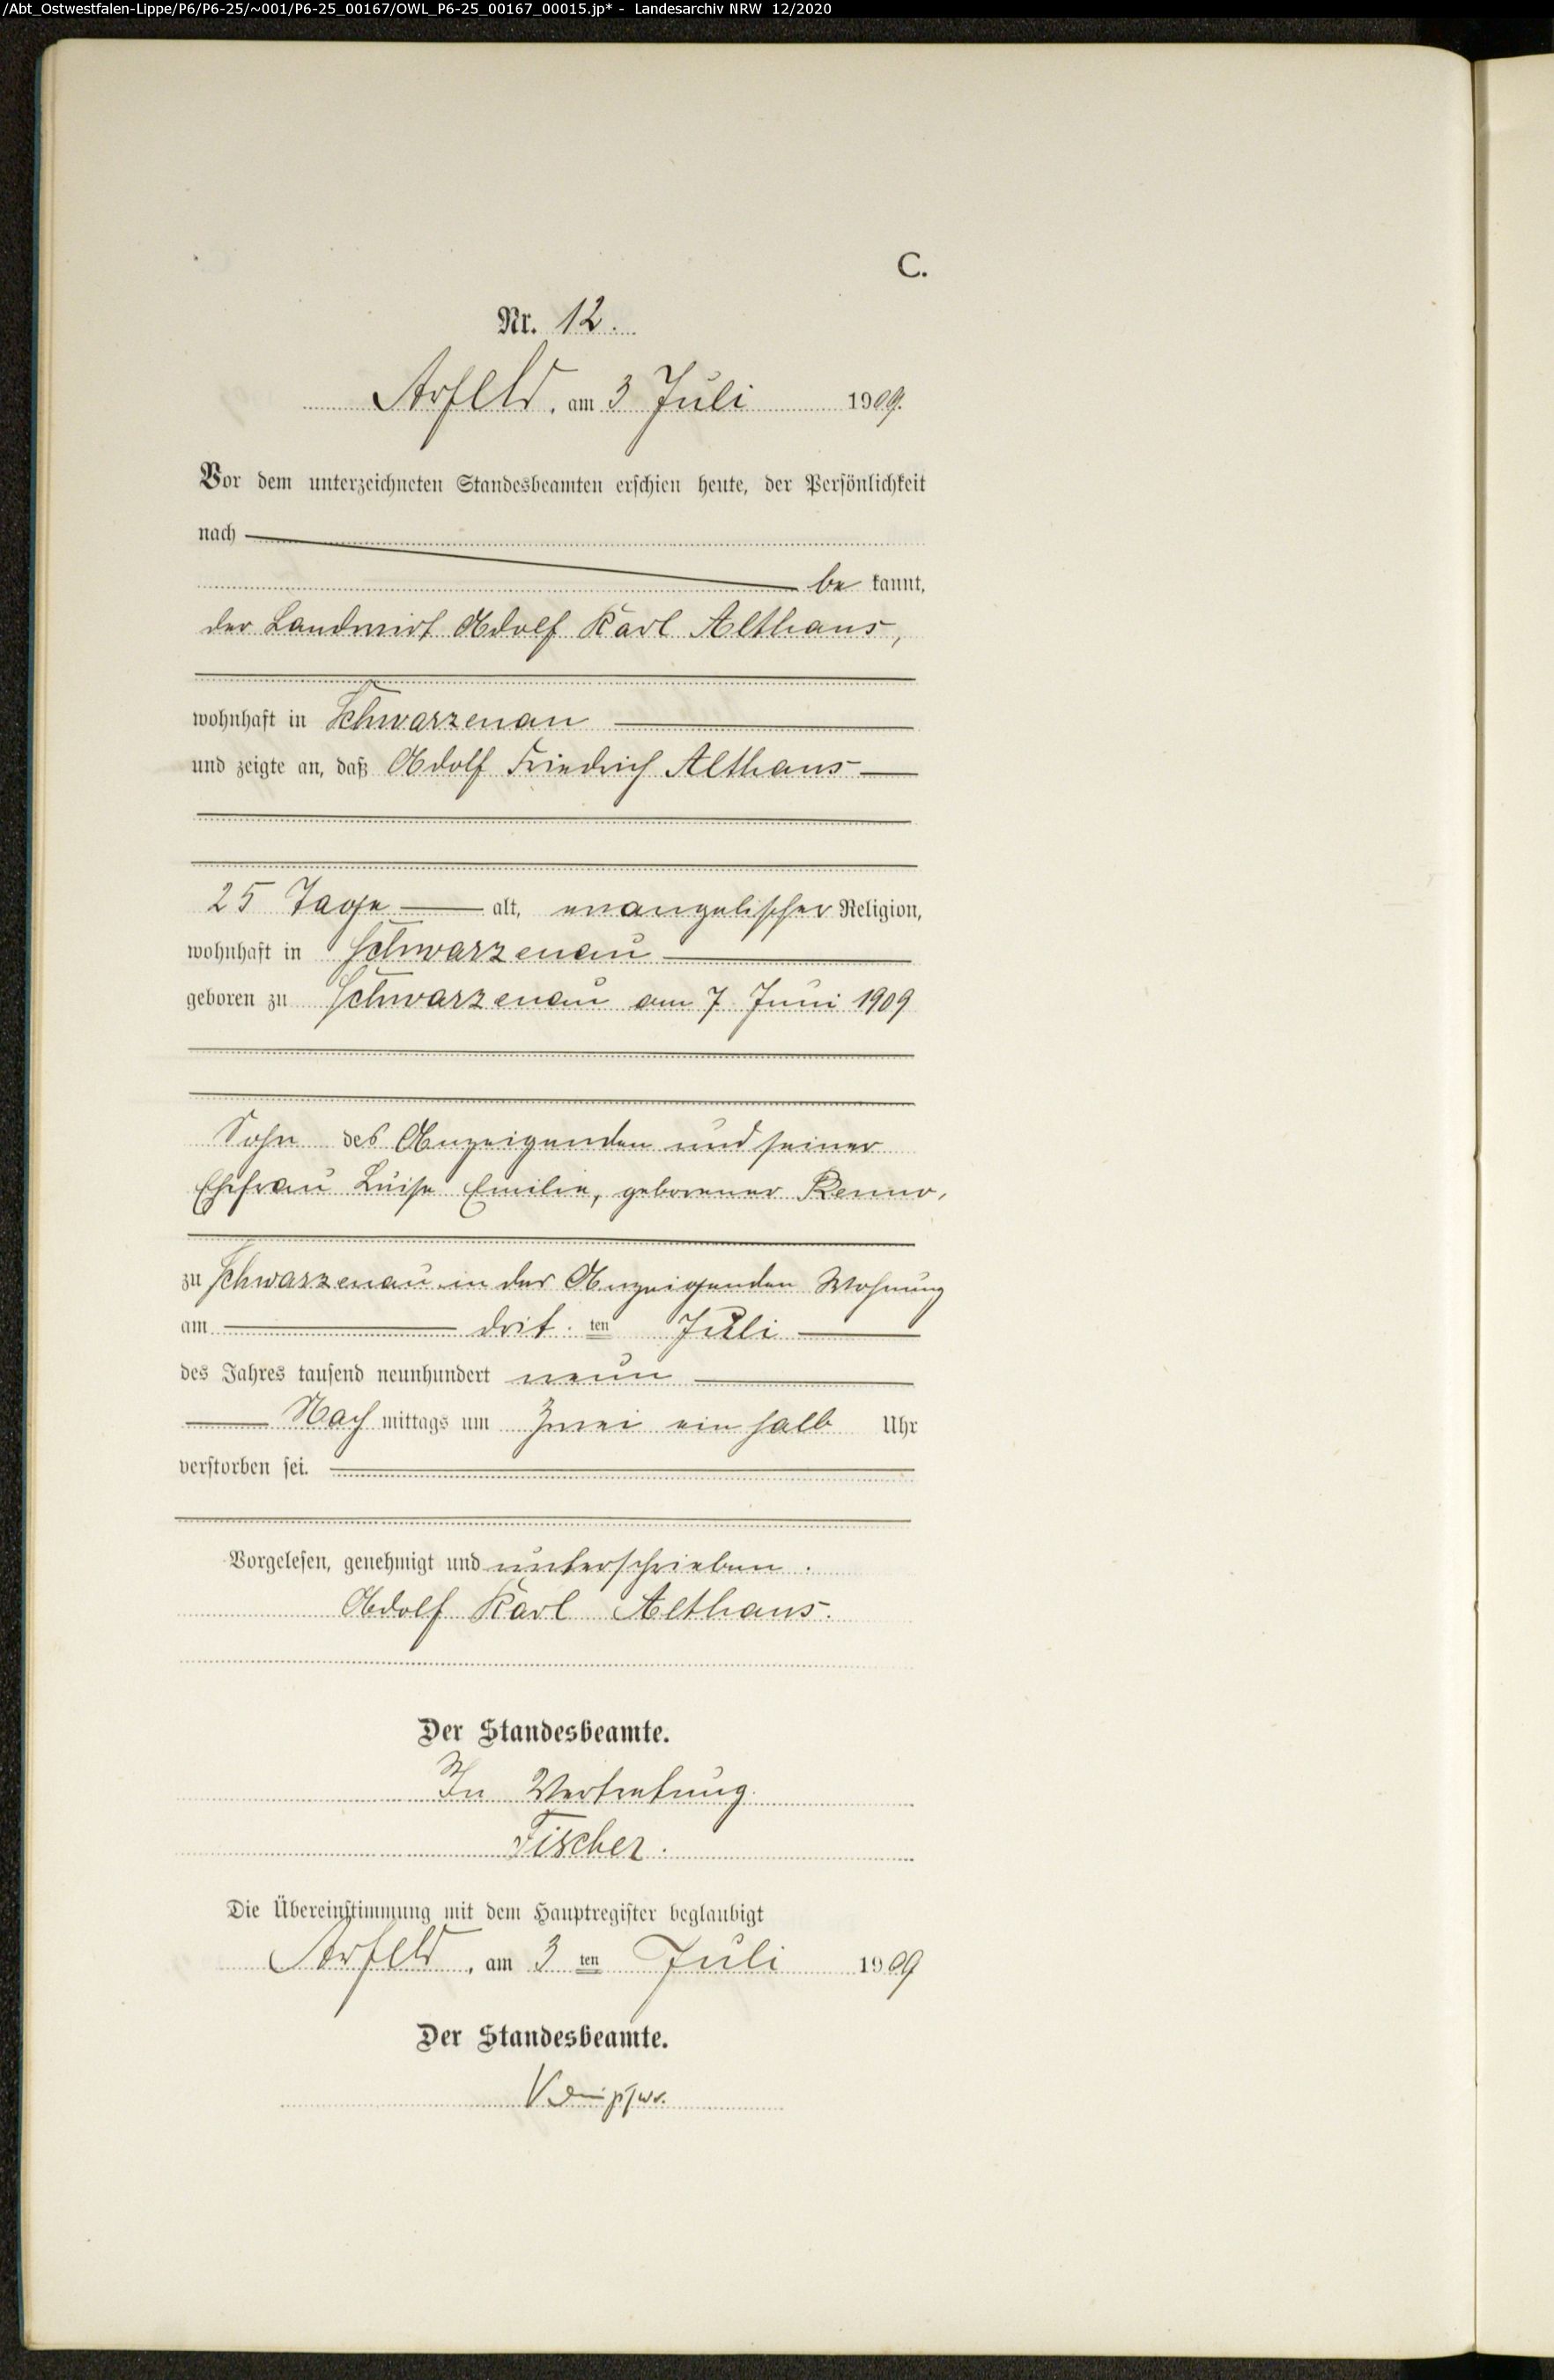 /Abt_Ostwestfalen-Lippe/P6/P6-25/~001/P6-25_00167/OWL_P6-25_00167_00015.jp* - Landesarchiv NRW 12/2020
C.
Nr. 12.
Arfeld, am 3 Juli 1909.
Vor dem unterzeichneten Standesbeamten erschien heute, der Persönlichkeit
nach
be kannt,
der Landwirt Adolf Karl Althaus,
wohnhaft in Schwarzenau
und zeigte an, daß Adolf Friedrich Althaus
25 Tage alt, evangelischer Religion,
wohnhaft in Schwarzenau
geboren zu Schwarzenau am 7 Juni 1909
Sohn des Anzeigenden und seiner
Ehefrau Luise Emilie, geborener Renno,
zu Schwarzenau in der Anzeigenden Wohnung
am drit. ten Juli
des Jahres tausend neunhundert neun
Nach mittags um zwei ein halb Uhr
verstorben sei.
Vorgelesen, genehmigt und unterschrieben.
Adolf Karl Althaus.
Der Standesbeamte.
In Vertretung
Fischer.
Die Übereinstimmung mit dem Hauptregister beglaubigt
Arfeld, am 3 ten Juli 1909
Der Standesbeamte.